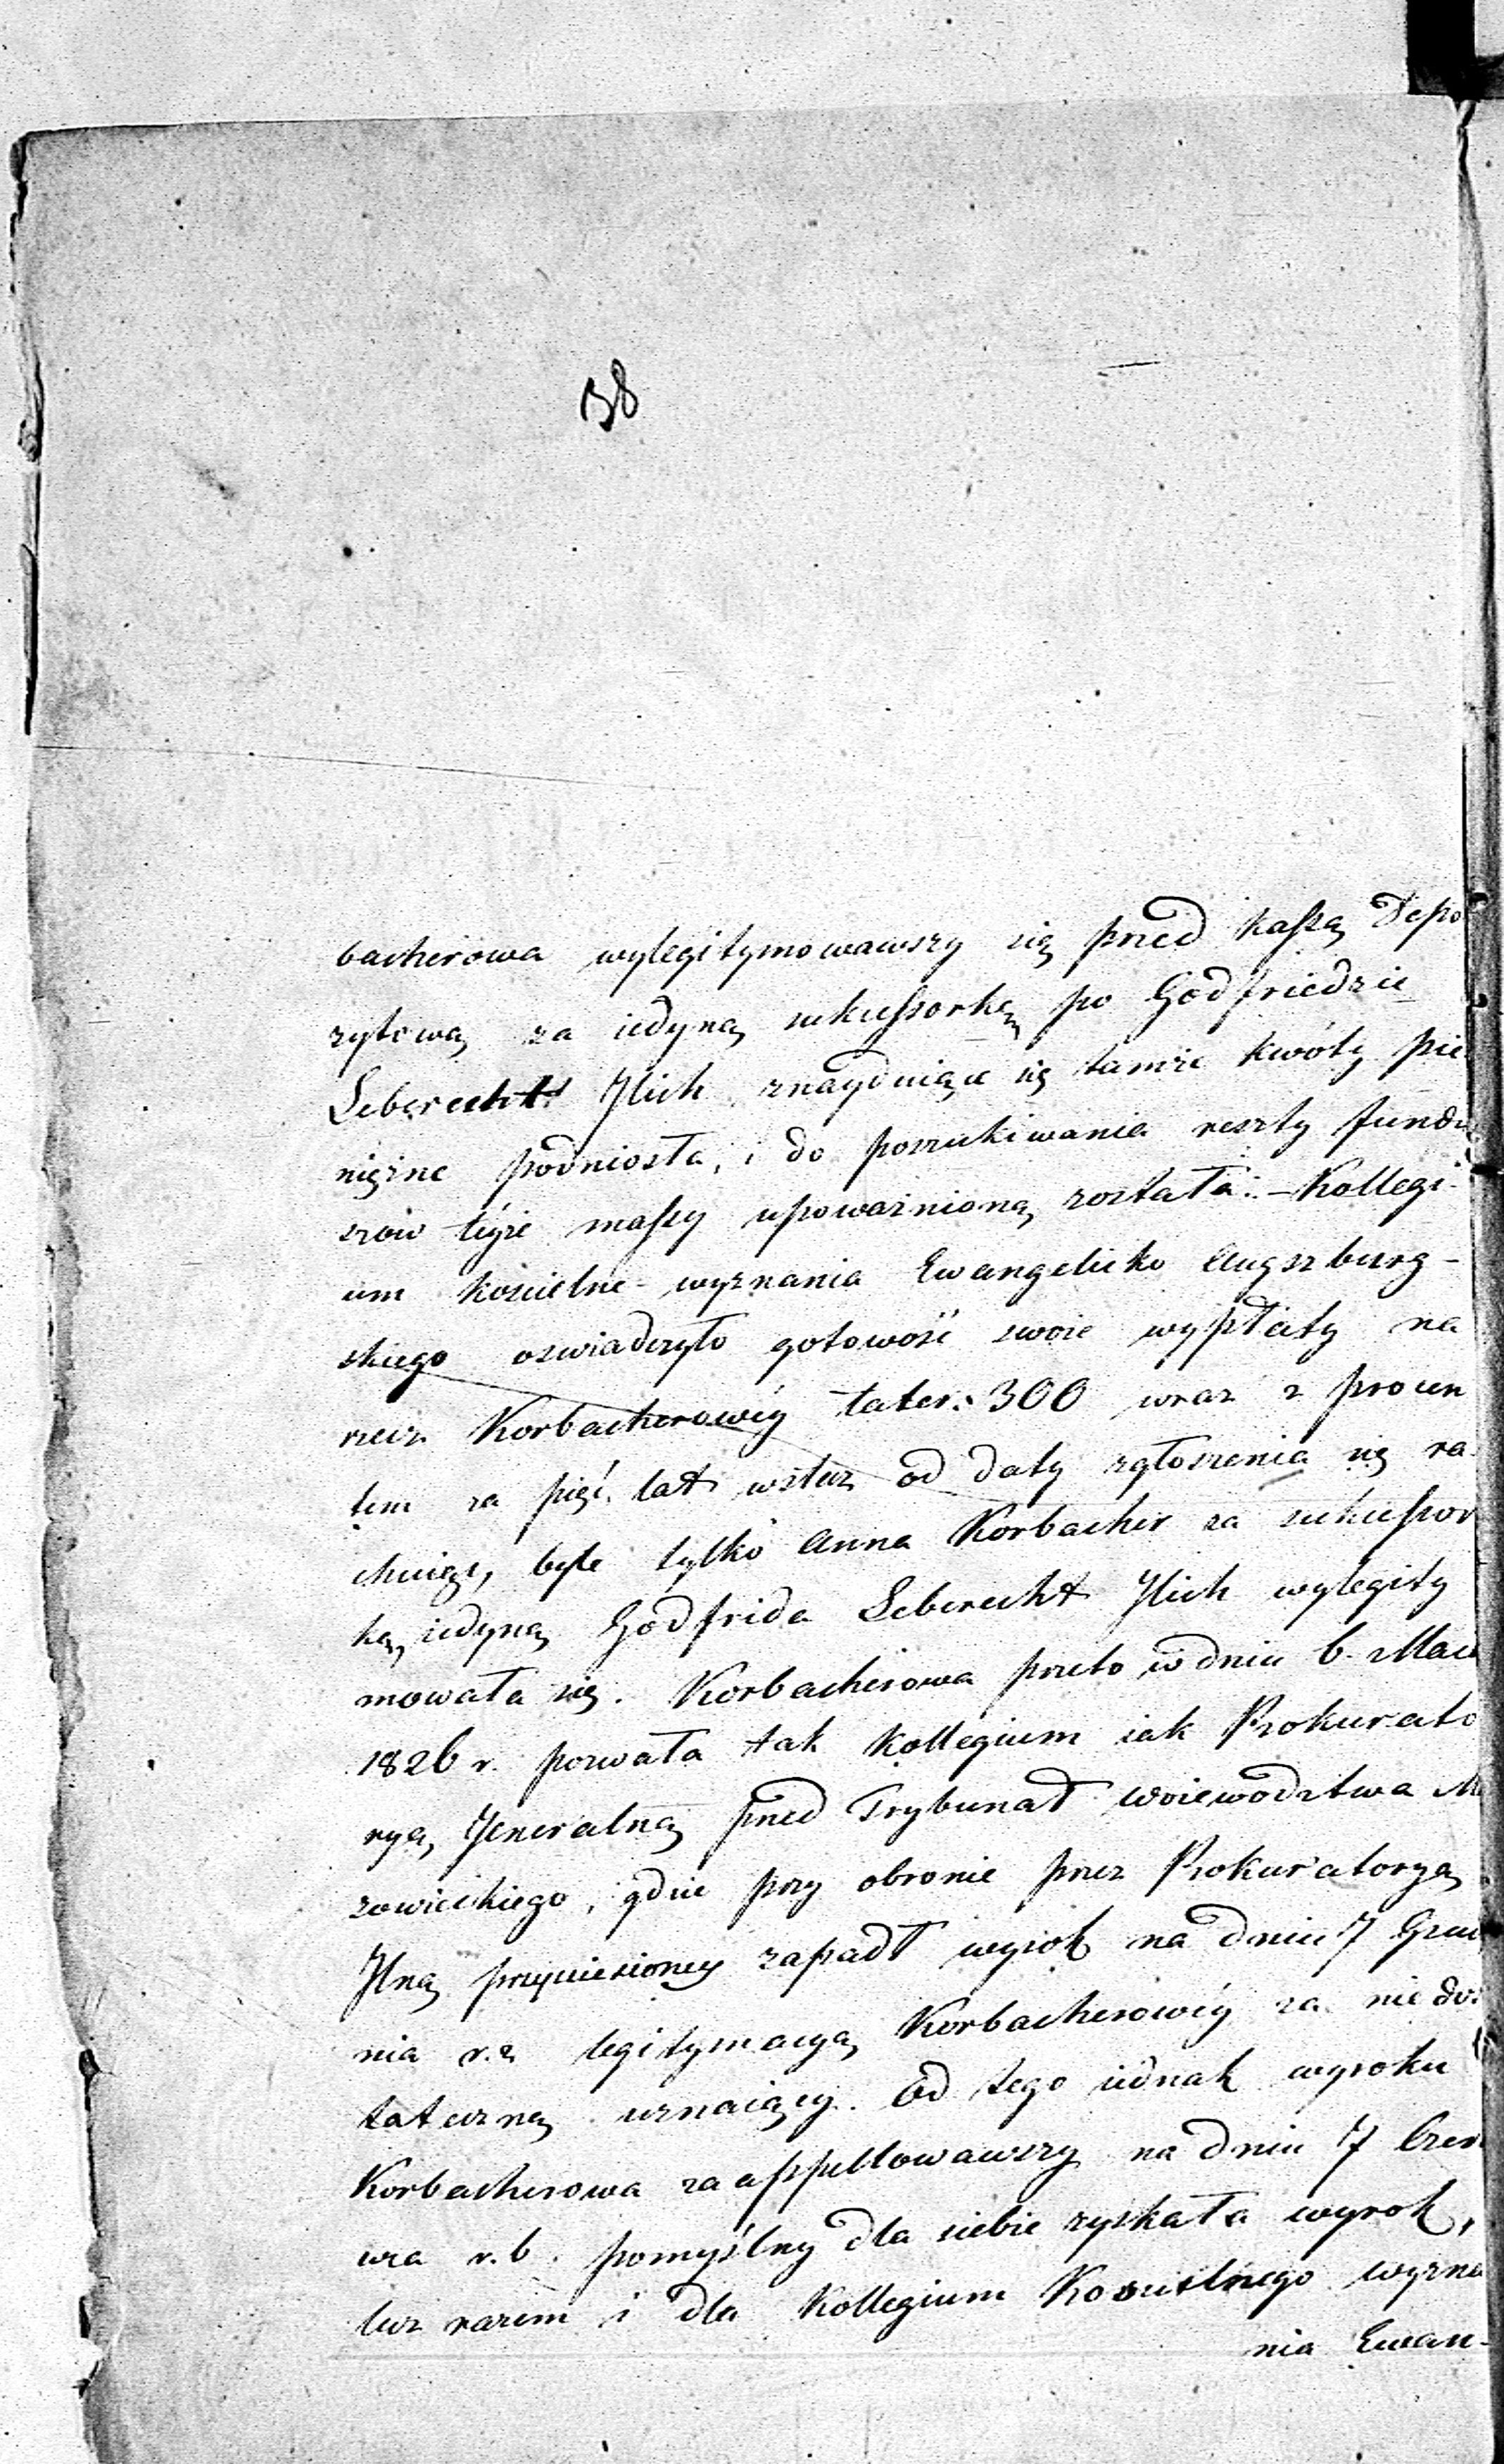 38
bacherowa wylegitymowawszy się przed kassą Depo
zytową za iedyną sukcessorkę po Godfriedzie
Leberecht Jlich znayduiące się tamże kwoty pie
niężne podniosła, i do poszukiwania reszty fundu
szów teyże massy upoważnioną została. – Kollegi-
um kościelne wyznania Ewangelicko Augszburg-
skiego oswiadczyło gotowość swoie wypłaty na
rzecz Korbacherowéy taler: 300 wraz z procen
tem za pięć lat wstecz od daty zgłoszenia się ra
chuiąc, byle tylko Anna Korbacher za sukcessor
kę iedyną Godfrida Leberecht Jlich wylegity
mowała się. Korbacherowa przeto w dniu 6. Mar
1826 r. pozwała tak Kollegium iak Prokurato
ryą Jeneralną przed Trybunał Woiewództwa Ma
zowieckiego, gdzie przy obronie przez Prokuratoryą
Jlną przyniesioney zapadł wyrok na dniu 7 Grud
nia r. z. legitymacyą Korbacherowéy za niedos
tateczną uznaiący. Od tego iednak wyroku
Korbacherowa zaappellowawszy na dniu 7 Czer
wca r. b. pomyślny dla siebie zyskała wyrok,
lecz razem i dla Kollegium Kościelnego wyzna
nia Ewan-